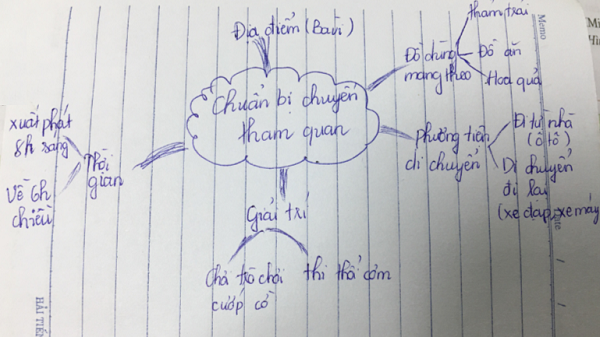 Địa điểm (Ba Vì)
Chuẩn bị chuyến
tham quan
Đồ dùng
mang theo
thảm trải
Đồ ăn
Hoa quả
phương tiện
di chuyển
Đi từ nhà
(ô tô)
Di chuyển
đi lại
(xe đạp, xe máy
Thời
gian
xuất phát
8h sáng
Về 6h
chiều
Giải trí
Chơi trò chơi
cướp cờ
thi thổi cơm
Memo
HẢI TIẾN